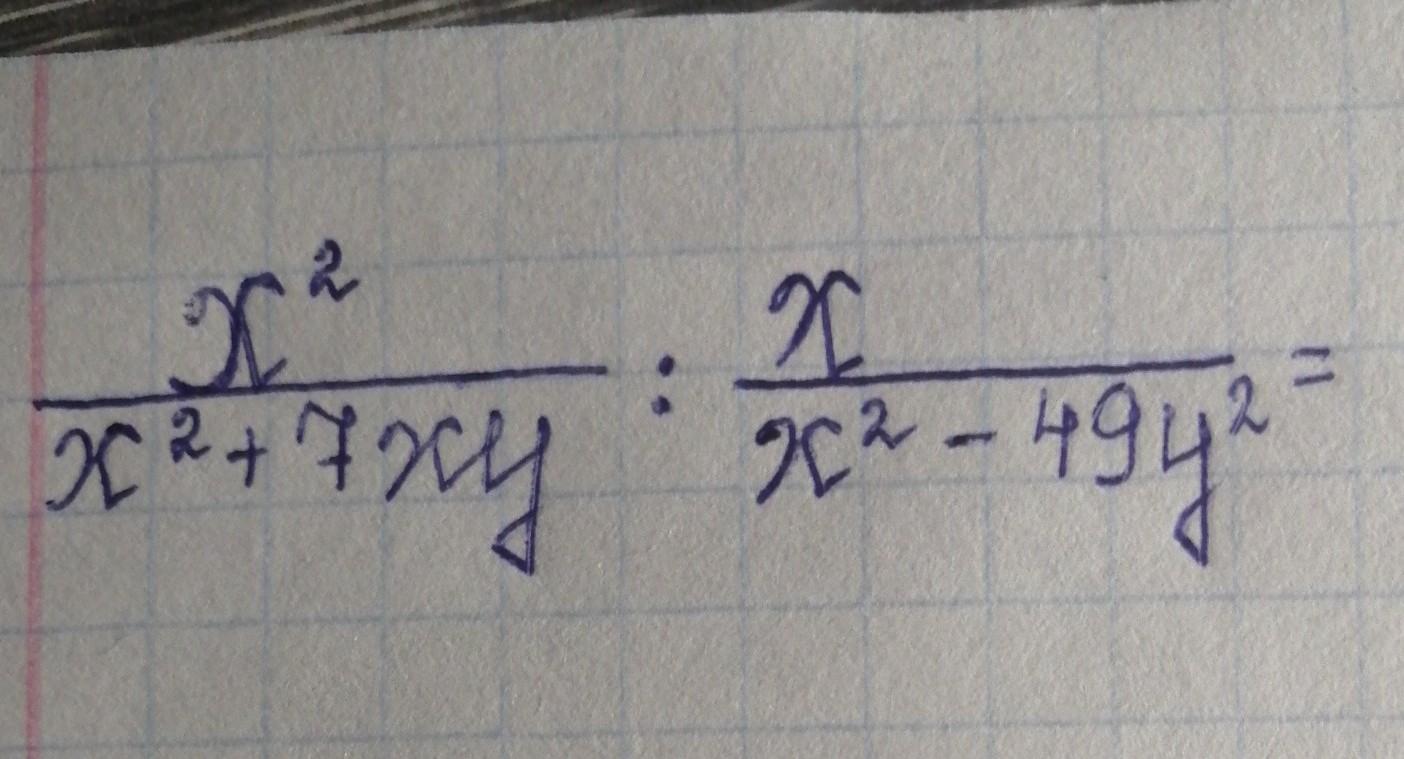 x²/(x² + 7xy) : x/(x² - 49y²) =